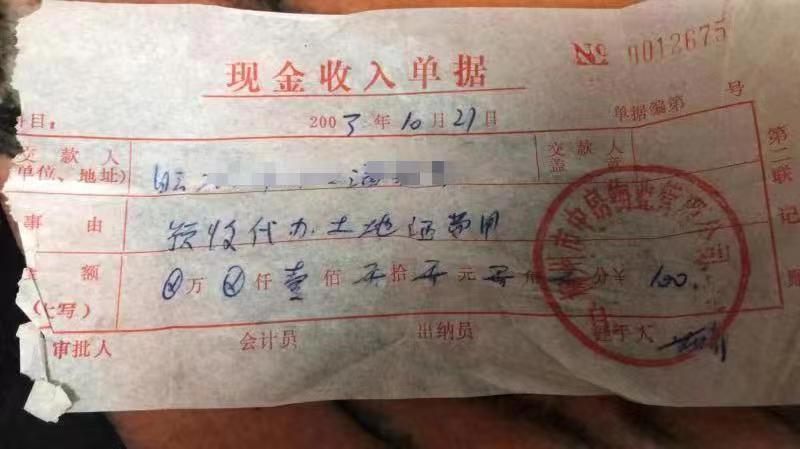 现金收入单据
№ 0012675
科目: 2003年10月21日 单据编第 号
交款人
单位、地址)
交款人
盖章
事由 预收代办土地证费用
金额 ⊗万⊗仟壹佰 拾 元 角 分¥ 100.
(大写)
审批人 会计员 出纳员 经手人
第二联记账